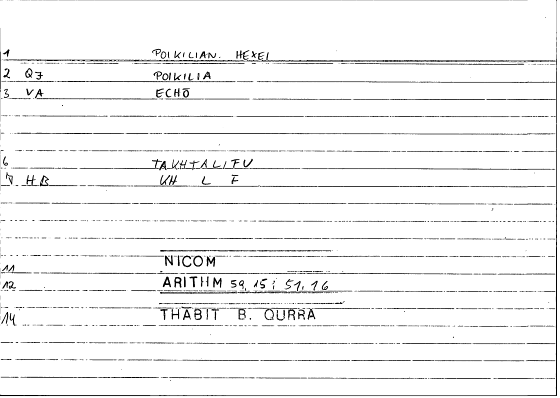 1 POIKILIAN. HEXEI
2 QJ POIKILIA
3 VA ECHŌ
6 TAKHTALIFU
7 HB KH L F
11 NICOM
12 ARITHM 59, 15; 51, 16
14 THĀBIT B. QURRA